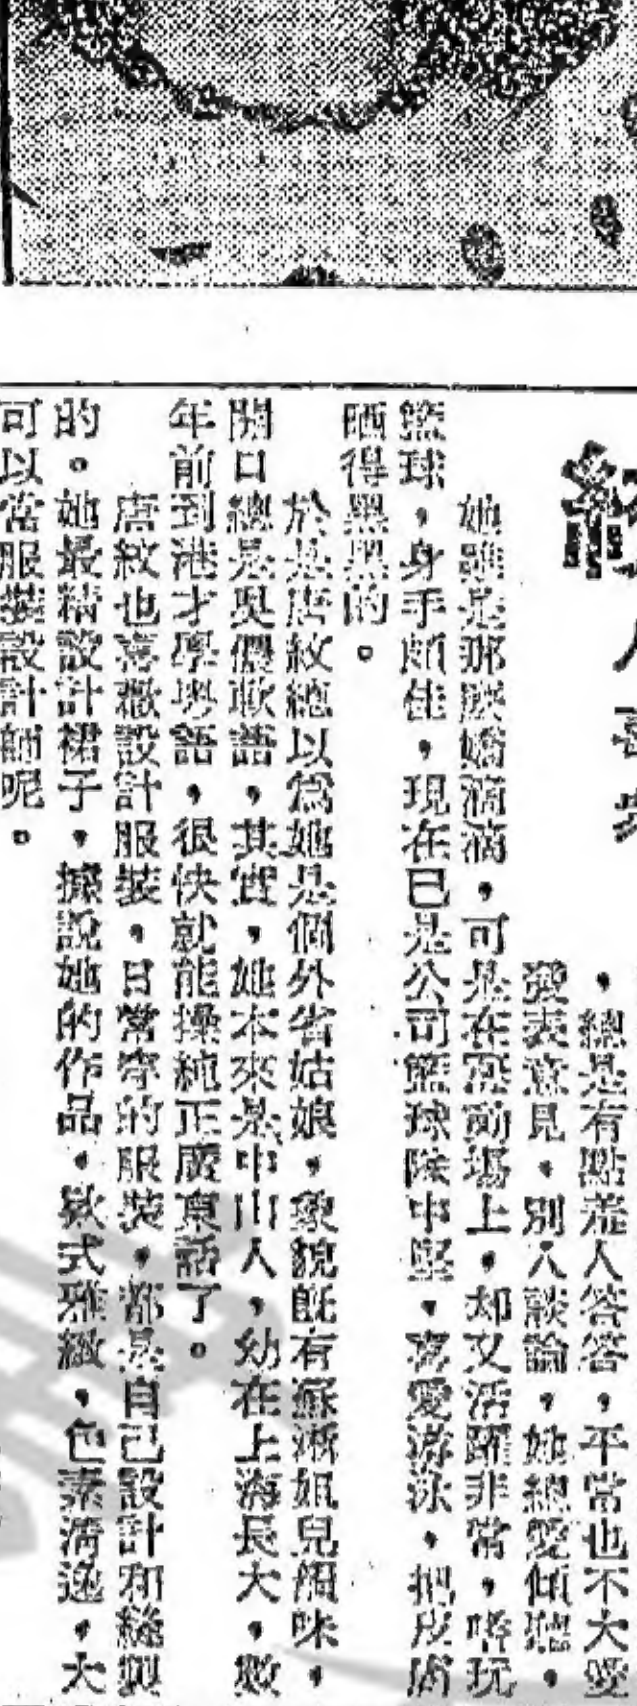 ，總是有點羞人答答，平常也不大愛
發表意見，別人談論，她總愛傾聽。
她雖是那麽嬌滴滴，可是在罡前場上，却又活躍非常，嗜玩
籃球，身手頗佳，現在已是公司籃球隊中堅，喜愛游泳，把皮膚
晒得黑黑的。
於是唐紋總以為她是個外省姑娘，象貌既有蘇浙姐兒韻味，
開口總是吳儂軟語，其實，她本來是中山人，幼在上海長大，數
年前到港才學粵語，很快就能操純正廣東話了。
唐紋也喜歡設計服裝，日常穿的服裝，都是自己設計和縫製
的。她最精設計裙子，據說她的作品，欵式雅緻，色素清逸，大
可以當服裝設計師呢。